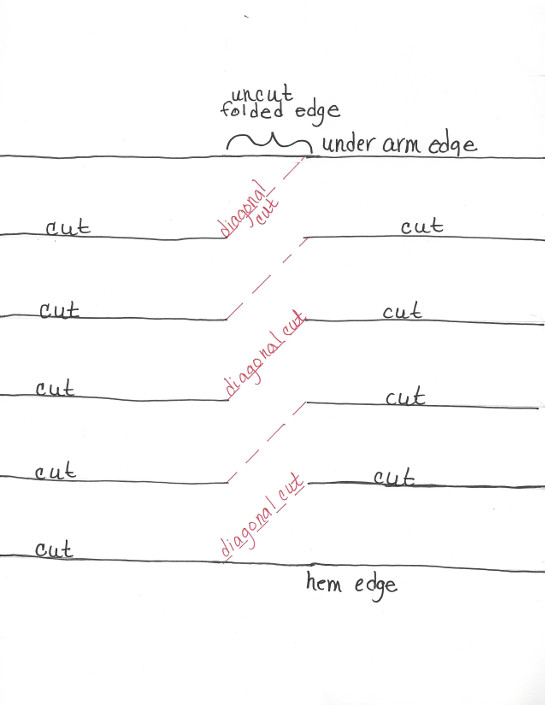 uncut
folded edge
under arm edge
diagonal
cut
cut
cut
cut
cut
diagonal cut
cut
cut
cut
cut
diagonal cut
cut
hem edge